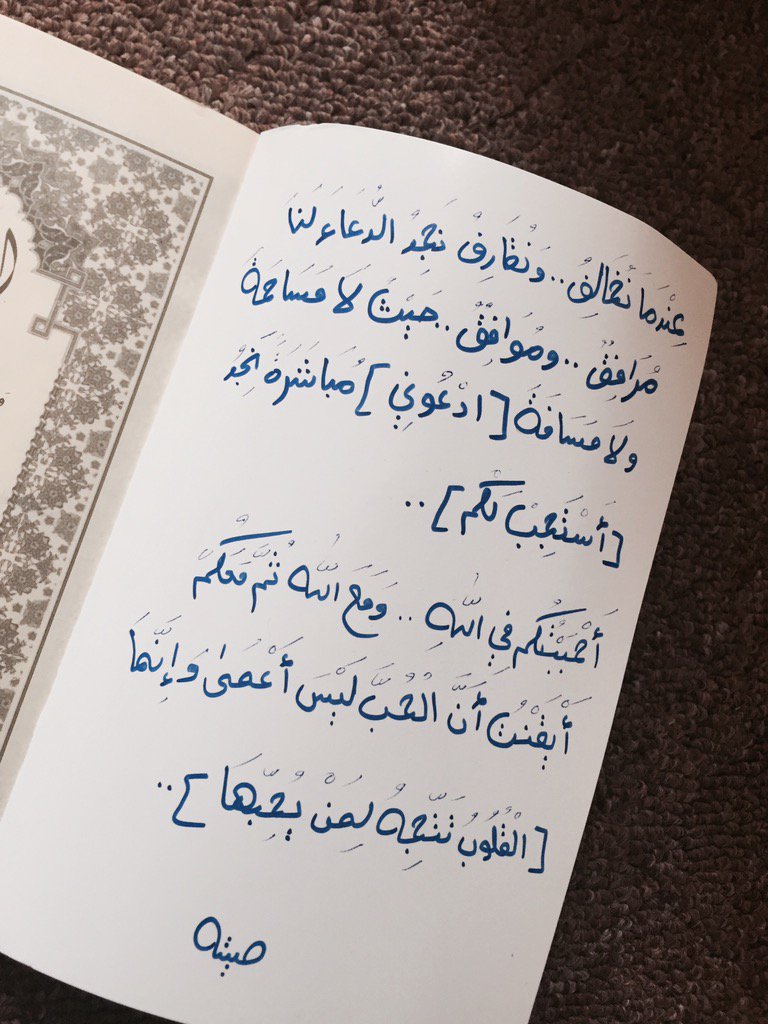 عِنْدَمَا نُخَالِفُ .. وَنُفَارِقُ نَجِدُ الدُّعَاءَ لَنَا
مُرَافِقٌ .. ومُوَافِقٌ .. حَيْثُ لَا مَسَاحَةَ
ولَا مَسَافَةَ [ادْعُونِي] مُبَاشَرَةً نَجِدُ
[أَسْتَجِبْ لَكُمْ] ..
أَحْبَبْتُكُم فِي اللّٰهِ .. وَمَعَ اللّٰهُ ثُمَّ مَعَكُمْ
أَيْقَنْتُ أَنَّ الْحُبَّ لَيْسَ أَعْمَىٰ وَإِنَّمَا
[الْقُلُوبُ تَتَّجِهُ لِمَنْ يُحِبُّهَا] ..